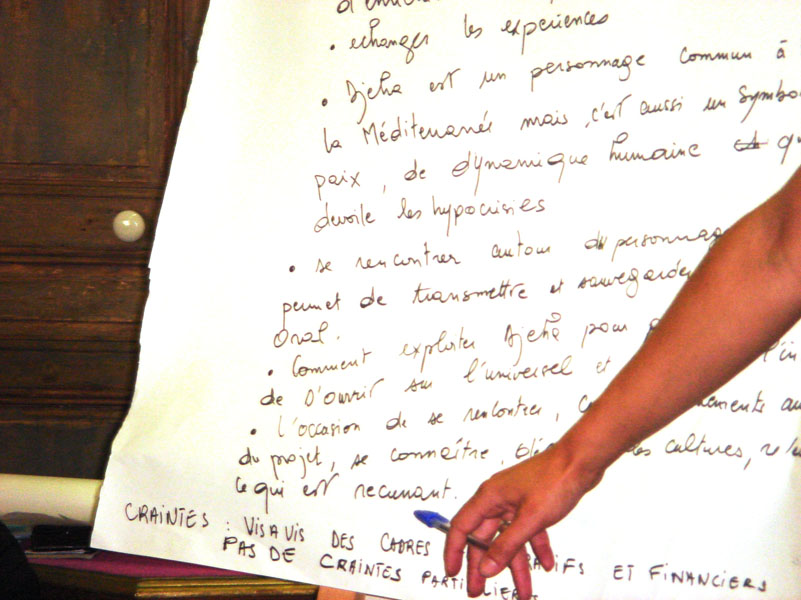 • echanger les experiences
• Djeha est un personnage commun à
la Méditerranée mais, c'est aussi un Symbo
paix, de dynamique humaine qu
devoile les hypocrisies
• se rencontrer autour du personnag
permet de transmettre et sauvegarder
Oral.
• Comment exploiter Djeha pour
de s'ouvrir sur l'universel et l'in
• l'occasion de se rencontrer, ments au
du projet, se connaître, des cultures,
ce qui est
CRAINTES : VIS A VIS DES CADRES RATIFS ET FINANCIERS
PAS DE CRAINTES PARTICULIERES